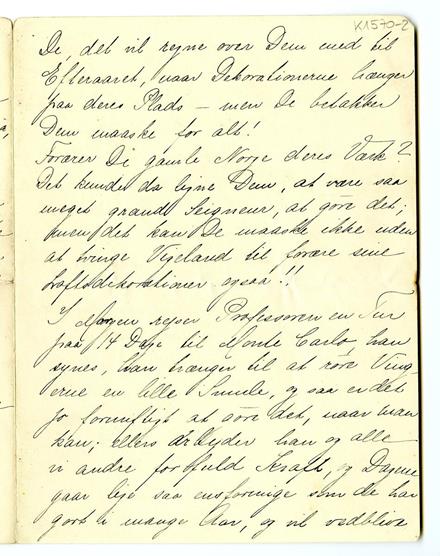 K1570-2
De, det vil regne over Dem med til
Efteraaret, naar Dekorationerne hænger
paa deres Plads – men De betakker
Dem maaske for alt!
Forærer De gamle Norge deres Værk?
Det kunde da ligne Dem, at være saa
meget grand Seigneur, at göre det;
men det kan De maaske ikke uden
at tvinge Vigeland til forære sine
Kraftsdekorationer ogsaa!!
I Morgen rejser Professoren en Tur
paa 14 Dage til Monte Carlo, han
synes, han trænger til at röre Ving-
erne en lille Smule, og saa er det
jo fornuftigt at göre det, naar man
kan; ellers arbejder han og alle
vi andre for fuld Kraft, og Dagene
gaar lige saa ensformige som de har
gort i mange Aar, og vil vedblive